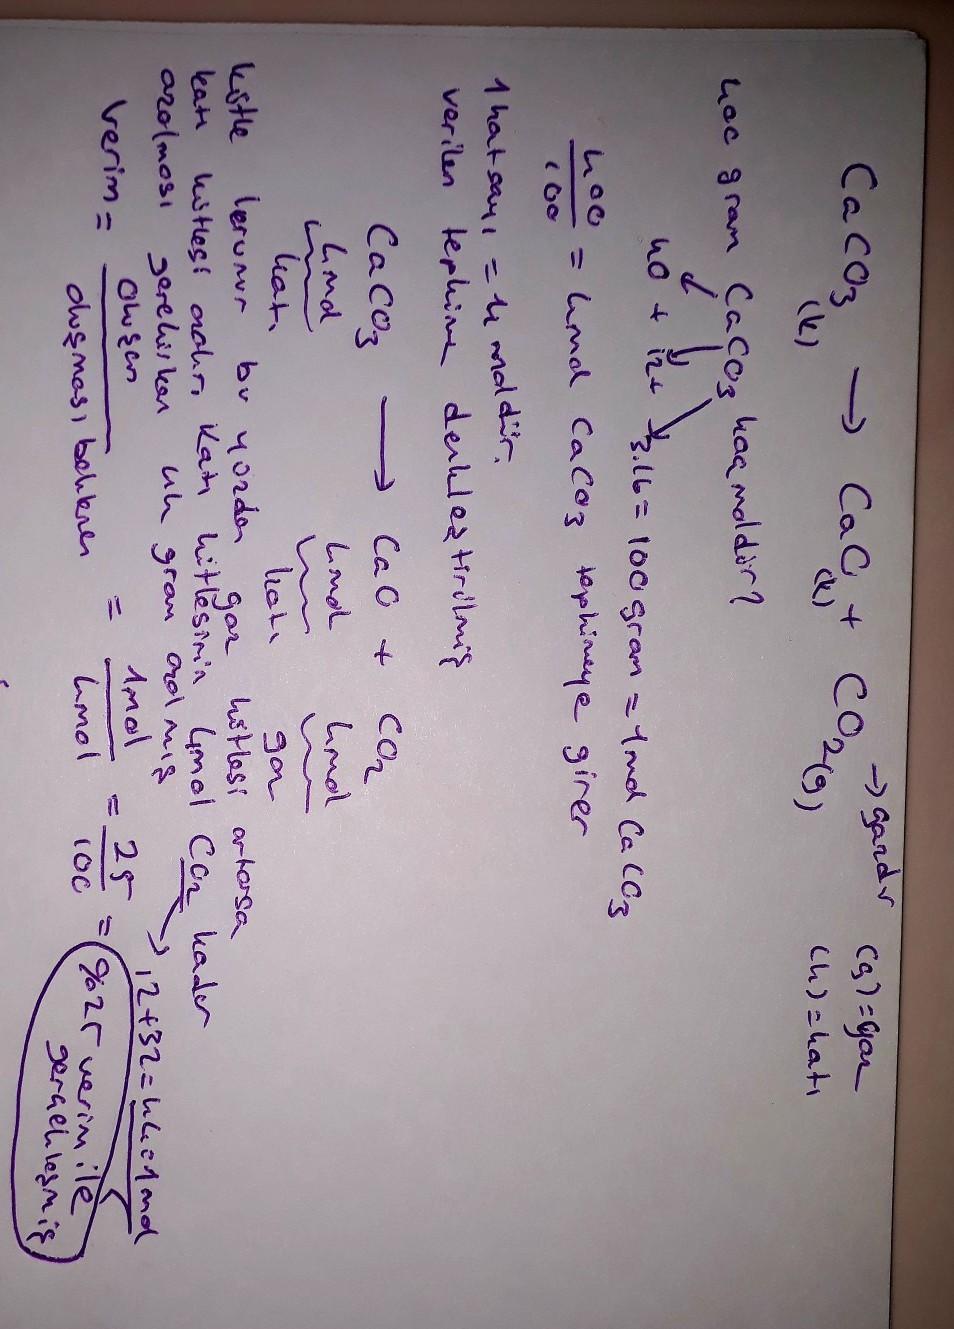 CaCO3 (k) → CaO (k) + CO2(g) → gazdır (g)=gaz
(k)=katı
400 gram CaCO3 kaç moldür?
40 + 12 + 3.16 = 100 gram = 1 mol CaCO3
400/100 = 4 mol CaCO3 tepkimeye girer
1 katsayı = 4 moldür.
verilen tepkime denkleştirilmiş
CaCO3 → CaO + CO2
4mol 4mol 4mol
katı katı gaz
kütle korunur bu yüzden gaz kütlesi artarsa
katı kütlesi azalır. Katı kütlesinin 4mol CO2 kadar
azalması gerekirken 44 gram azalmış → 12+32=44=1mol
verim = oluşan / oluşması beklenen = 1mol / 4mol = 25/100 = %25 verim ile
gerçekleşmiş